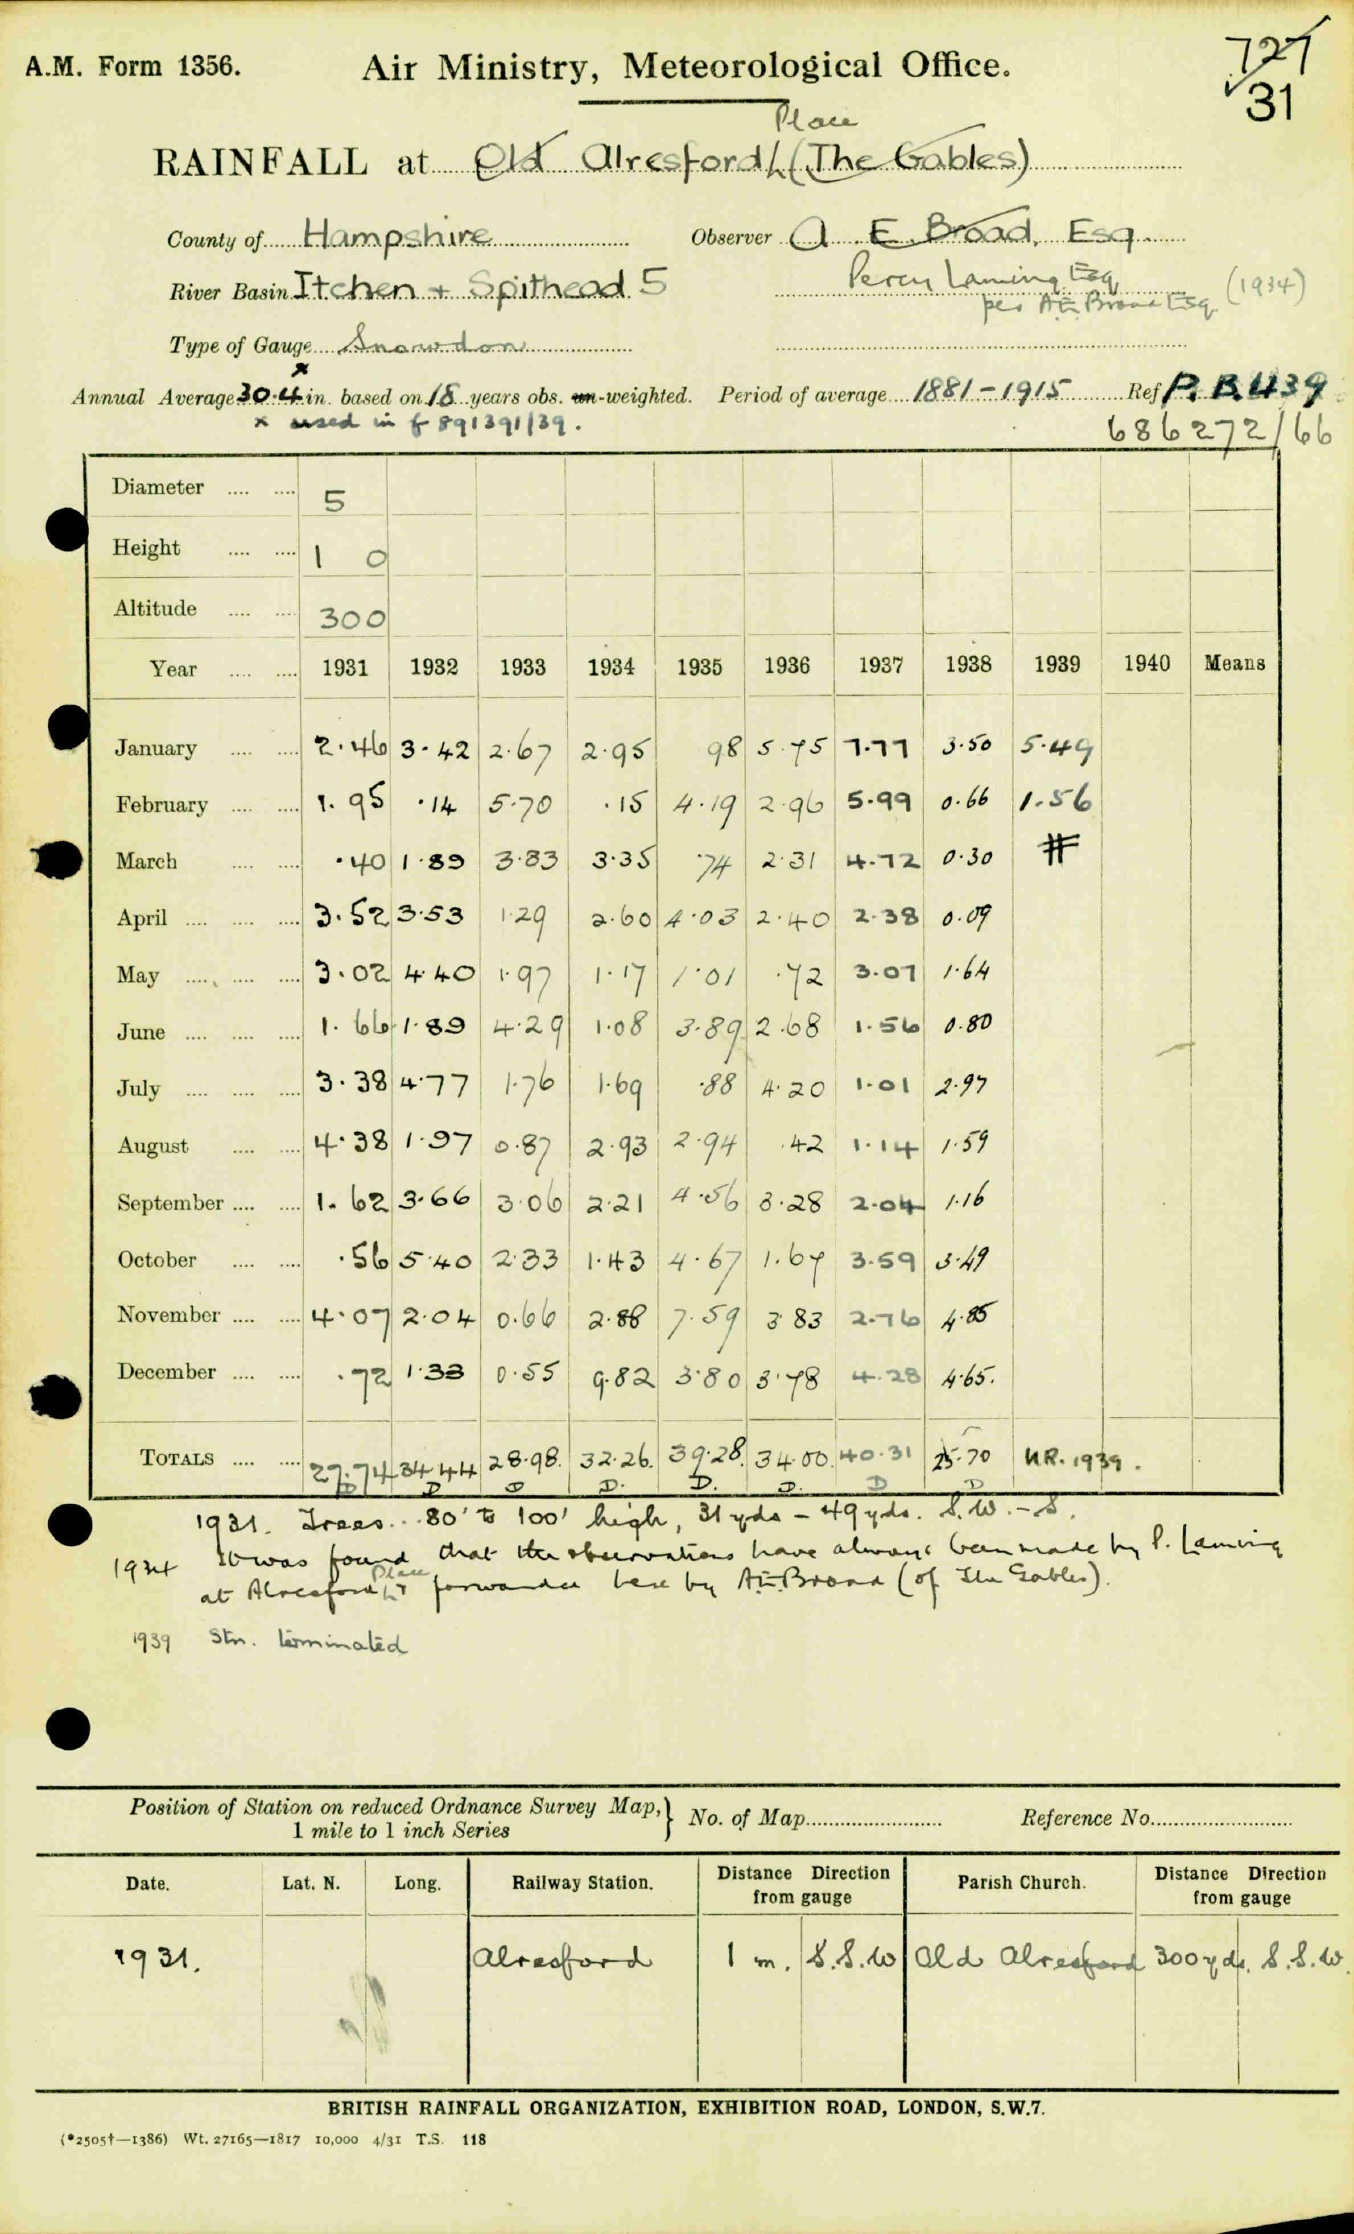 A.M. Form 1356.
Air Ministry, Meteorological Office.
727
31
Place
RAINFALL at Old Alresford (The Gables)
County of Hampshire Observer A. E. Broad, Esq.
River Basin Itchen + Spithead 5 Percy Laming Esq
per A.E. Broad Esq (1934)
Type of Gauge Snowdon
x
Annual Average 30.4 in. based on 18 years obs. un-weighted. Period of average 1881-1915 Ref P.B.439
x used in f 891391/39. 686272/66
Diameter 5
Height 1 0
Altitude 300
Year 1931 1932 1933 1934 1935 1936 1937 1938 1939 1940 Means
January 2.46 3.42 2.67 2.95 98 5.75 7.77 3.50 5.49
February 1.95 .14 5.70 .15 4.19 2.96 5.99 0.66 1.56
March .40 1.89 3.83 3.35 .74 2.31 4.72 0.30 #
April 3.52 3.53 1.29 2.60 4.03 2.40 2.38 0.09
May 3.02 4.40 1.97 1.17 1.01 .72 3.07 1.64
June 1.66 1.89 4.29 1.08 3.89 2.68 1.56 0.80
July 3.38 4.77 1.76 1.69 .88 4.20 1.01 2.97
August 4.38 1.97 0.87 2.93 2.94 .42 1.14 1.59
September 1.62 3.66 3.06 2.21 4.56 3.28 2.04 1.16
October .56 5.40 2.33 1.43 4.67 1.67 3.59 3.49
November 4.07 2.04 0.66 2.88 7.59 3.83 2.76 4.85
December .72 1.33 0.55 9.82 3.80 3.78 4.28 4.65.
TOTALS 27.74 34.44 28.98. 32.26. 39.28. 34.00. 40.31 25.70 N.R. 1939.
D D D D. D. D. D D
1931. Trees... 80' to 100' high, 31 yds - 49 yds. S.W. - S.
1934 It was found that the observations have always been made by P. Laming
Place
at Alresford & forwarded here by A.E. Broad (of The Gables).
1939 Stn. terminated
Position of Station on reduced Ordnance Survey Map, } No. of Map Reference No.
1 mile to 1 inch Series
Date. Lat. N. Long. Railway Station. Distance Direction from gauge Parish Church. Distance Direction from gauge
1931. Alresford 1 m. S.S.W Old Alresford 300 yds. S.S.W.
BRITISH RAINFALL ORGANIZATION, EXHIBITION ROAD, LONDON, S.W.7.
(*2505†—1386) Wt. 27165—1817 10,000 4/31 T.S. 118